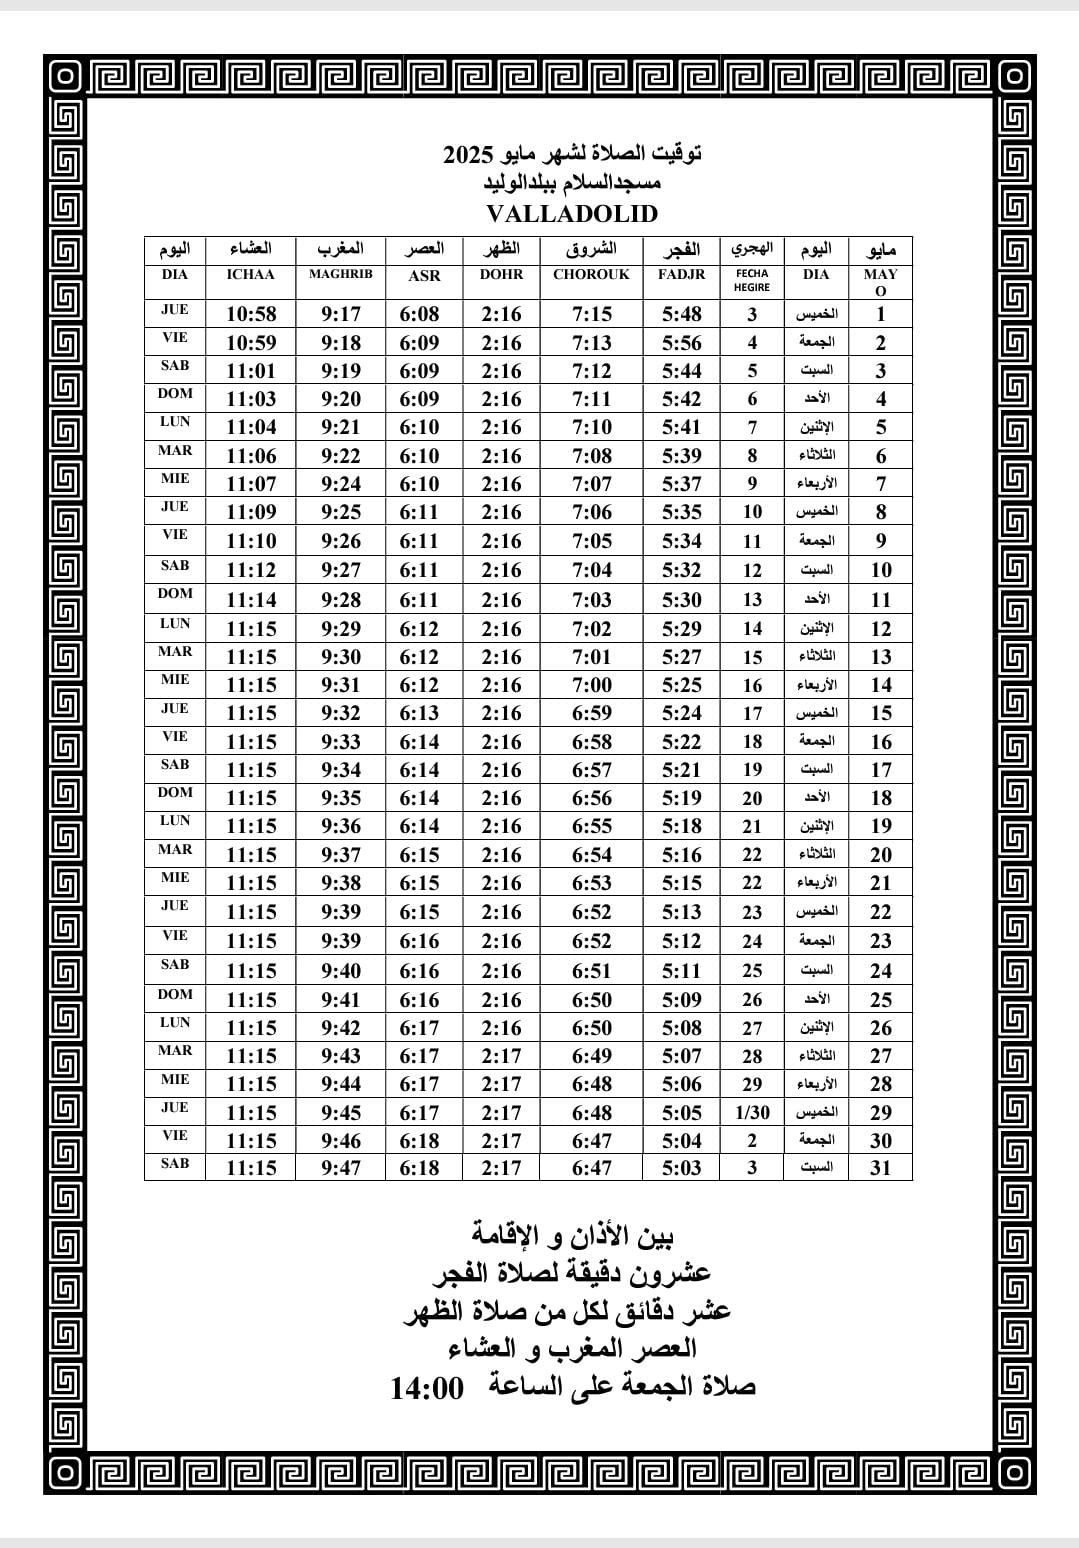 توقيت الصلاة لشهر مايو 2025
مسجدالسلام ببلدالوليد
VALLADOLID
مايو اليوم الهجري الفجر الشروق الظهر العصر المغرب العشاء اليوم
MAYO DIA FECHA HEGIRE FADJR CHOROUK DOHR ASR MAGHRIB ICHAA DIA
1 الخميس 3 5:48 7:15 2:16 6:08 9:17 10:58 JUE
2 الجمعة 4 5:56 7:13 2:16 6:09 9:18 10:59 VIE
3 السبت 5 5:44 7:12 2:16 6:09 9:19 11:01 SAB
4 الأحد 6 5:42 7:11 2:16 6:09 9:20 11:03 DOM
5 الإثنين 7 5:41 7:10 2:16 6:10 9:21 11:04 LUN
6 الثلاثاء 8 5:39 7:08 2:16 6:10 9:22 11:06 MAR
7 الأربعاء 9 5:37 7:07 2:16 6:10 9:24 11:07 MIE
8 الخميس 10 5:35 7:06 2:16 6:11 9:25 11:09 JUE
9 الجمعة 11 5:34 7:05 2:16 6:11 9:26 11:10 VIE
10 السبت 12 5:32 7:04 2:16 6:11 9:27 11:12 SAB
11 الأحد 13 5:30 7:03 2:16 6:11 9:28 11:14 DOM
12 الإثنين 14 5:29 7:02 2:16 6:12 9:29 11:15 LUN
13 الثلاثاء 15 5:27 7:01 2:16 6:12 9:30 11:15 MAR
14 الأربعاء 16 5:25 7:00 2:16 6:12 9:31 11:15 MIE
15 الخميس 17 5:24 6:59 2:16 6:13 9:32 11:15 JUE
16 الجمعة 18 5:22 6:58 2:16 6:14 9:33 11:15 VIE
17 السبت 19 5:21 6:57 2:16 6:14 9:34 11:15 SAB
18 الأحد 20 5:19 6:56 2:16 6:14 9:35 11:15 DOM
19 الإثنين 21 5:18 6:55 2:16 6:14 9:36 11:15 LUN
20 الثلاثاء 22 5:16 6:54 2:16 6:15 9:37 11:15 MAR
21 الأربعاء 22 5:15 6:53 2:16 6:15 9:38 11:15 MIE
22 الخميس 23 5:13 6:52 2:16 6:15 9:39 11:15 JUE
23 الجمعة 24 5:12 6:52 2:16 6:16 9:39 11:15 VIE
24 السبت 25 5:11 6:51 2:16 6:16 9:40 11:15 SAB
25 الأحد 26 5:09 6:50 2:16 6:16 9:41 11:15 DOM
26 الإثنين 27 5:08 6:50 2:16 6:17 9:42 11:15 LUN
27 الثلاثاء 28 5:07 6:49 2:17 6:17 9:43 11:15 MAR
28 الأربعاء 29 5:06 6:48 2:17 6:17 9:44 11:15 MIE
29 الخميس 1/30 5:05 6:48 2:17 6:17 9:45 11:15 JUE
30 الجمعة 2 5:04 6:47 2:17 6:18 9:46 11:15 VIE
31 السبت 3 5:03 6:47 2:17 6:18 9:47 11:15 SAB
بين الأذان و الإقامة
عشرون دقيقة لصلاة الفجر
عشر دقائق لكل من صلاة الظهر
العصر المغرب و العشاء
صلاة الجمعة على الساعة 14:00